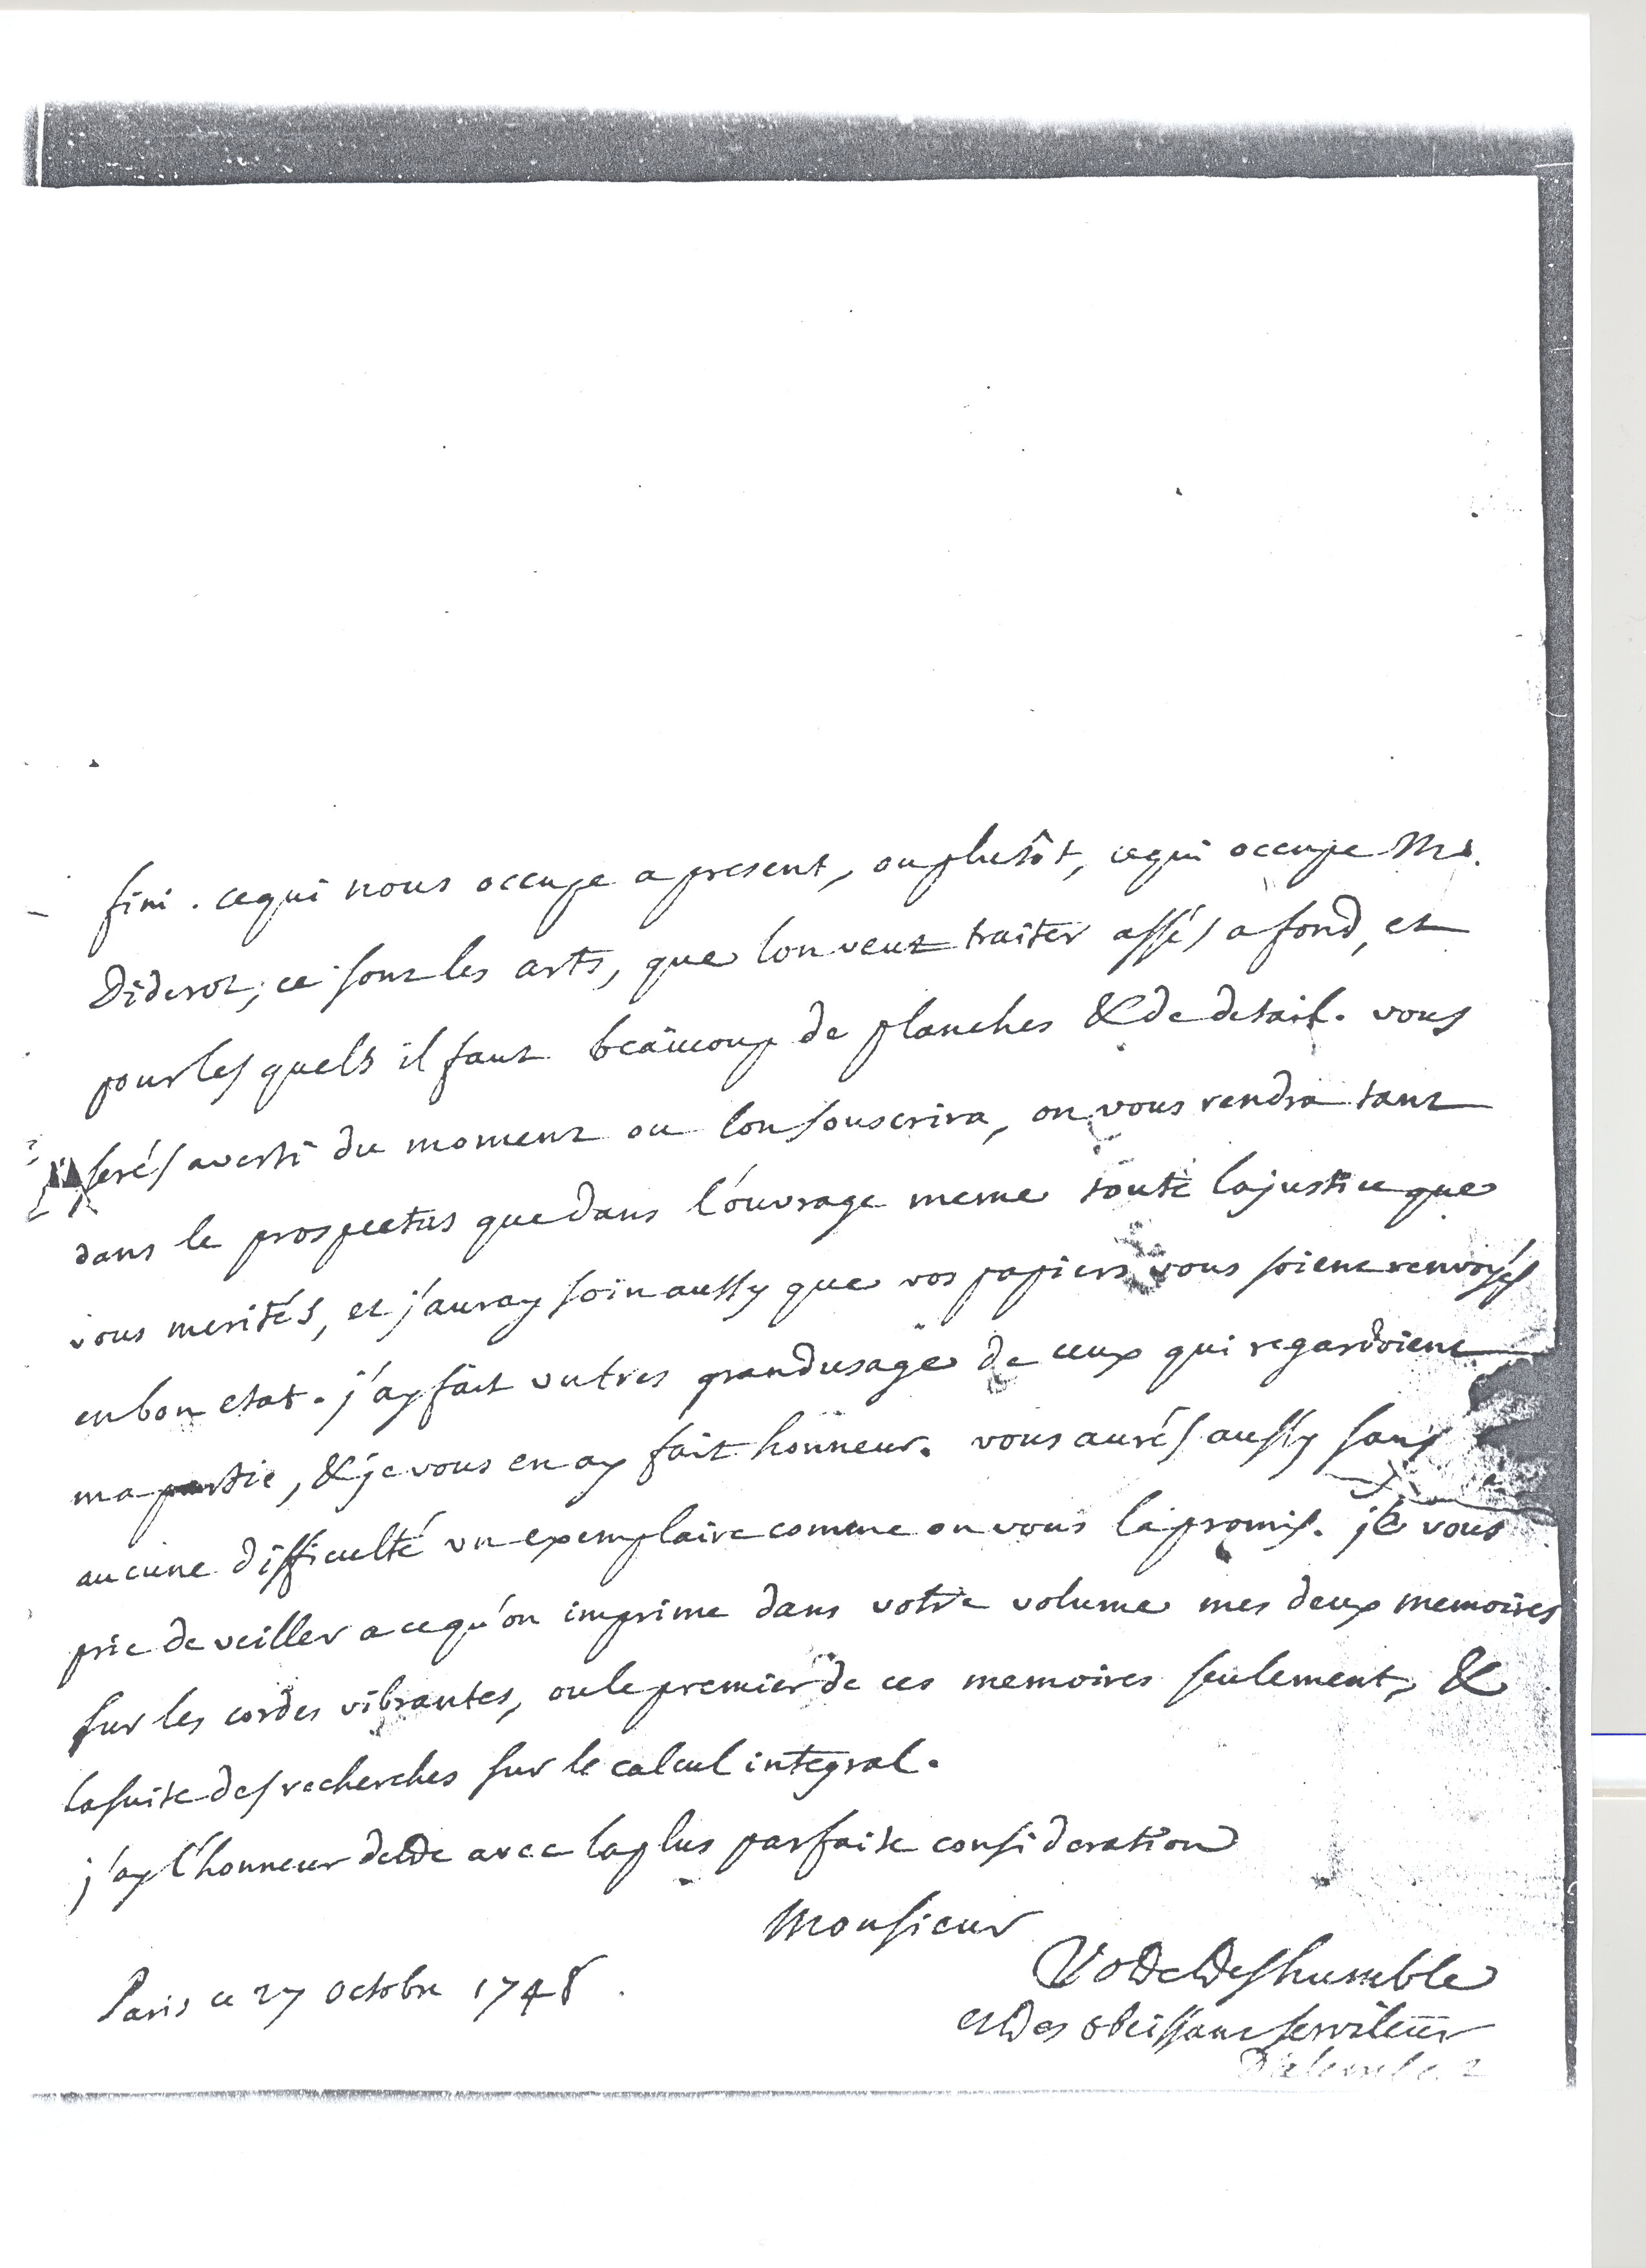 fini. ce qui nous occupe a present, ou plutôt, ce qui occupe Mr.
Diderot, ce sont les arts, que lon veut traiter assés a fond, et
pour les quels il faut beaucoup de planches & de detail. vous
serés averti du moment ou lon souscrira, on vous rendra tant
dans le prospectus que dans l'ouvrage meme toute la justice que
vous merités, et j'auray soin aussy que vos papiers vous soient renvoyés
en bon etat. j'ay fait un tres grand usage de ceux qui regardoient
ma partie, & je vous en ay fait honneur. vous aurés aussy sans
aucune difficulté un exemplaire comme on vous la promis. je vous
prie de veiller a ce qu'on imprime dans votre volume mes deux memoires
sur les cordes vibrantes, ou le premier de ces memoires seulement, &
la suite des recherches sur le calcul integral.
j'ay l'honneur detre avec la plus parfaite consideration
Monsieur
Votre tres humble
et tres obeissant serviteur
Paris ce 27 octobre 1748.
D'alembert